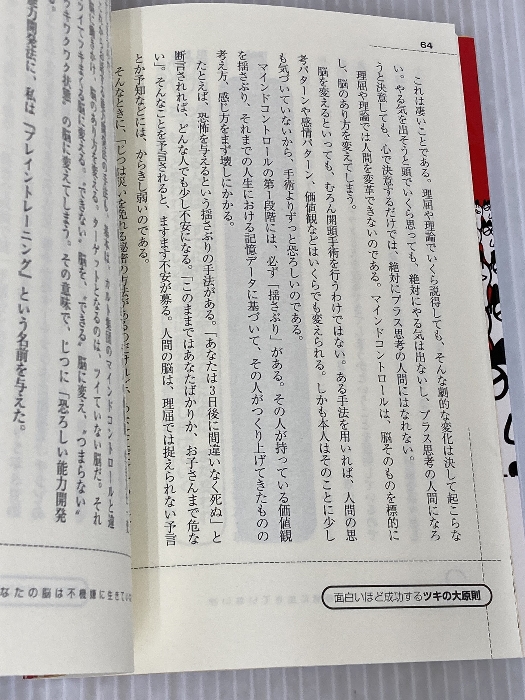 64
これは凄いことである。理屈や理論でいくら説得しても、そんな劇的な変化は決して起こらな
い。やる気を出そうと頭でいくら思っても、絶対にやる気は出ないし、プラス思考の人間になろ
うと決意しても、心で決意するだけでは、絶対にプラス思考の人間にはなれない。
理屈や理論では人間を変革できないのである。マインドコントロールは、脳そのものを標的に
し、脳のあり方を変えてしまう。
脳を変えるといっても、むろん開頭手術を行うわけではない。ある手法を用いれば、人間の思
考パターンや感情パターン、価値観などはいくらでも変えられる。しかも本人はそのことに少し
も気づいていないから、手術よりずっと恐ろしいのである。
マインドコントロールの第1段階には、必ず「揺さぶり」がある。その人が持っている価値観
を揺さぶり、それまでの人生における記憶データに基づいて、その人がつくり上げてきたものの
考え方、感じ方をまず壊しにかかる。
たとえば、恐怖を与えるという揺さぶりの手法がある。「あなたは3日後に間違いなく死ぬ」と
断言されれば、どんな人でも少し不安になる。「このままではあなたばかりか、お子さんまで危な
い」。そんなことを予言されると、ますます不安が募る。人間の脳は、理屈では捉えられない予言
とか予知などには、からきし弱いのである。
そんなときに、「じつは災いを免れる秘密の方法がある
面白いほど成功するツキの大原則
カルト集団のマインドコントロールと違
脳に働きかけ、脳のあり方を変える。ターゲットとなるのは、ツイていない脳だ。それ
ツイてツキまくる脳に変える。"できない"脳を、"できる"脳に変え、"つまらない"
キワクワク状態"の脳に変えてしまう。その意味で、じつに「恐ろしい能力開発
能力開発法に、私は「ブレイントレーニング」という名前を与えた。
なたの脳は不機嫌に生きてい